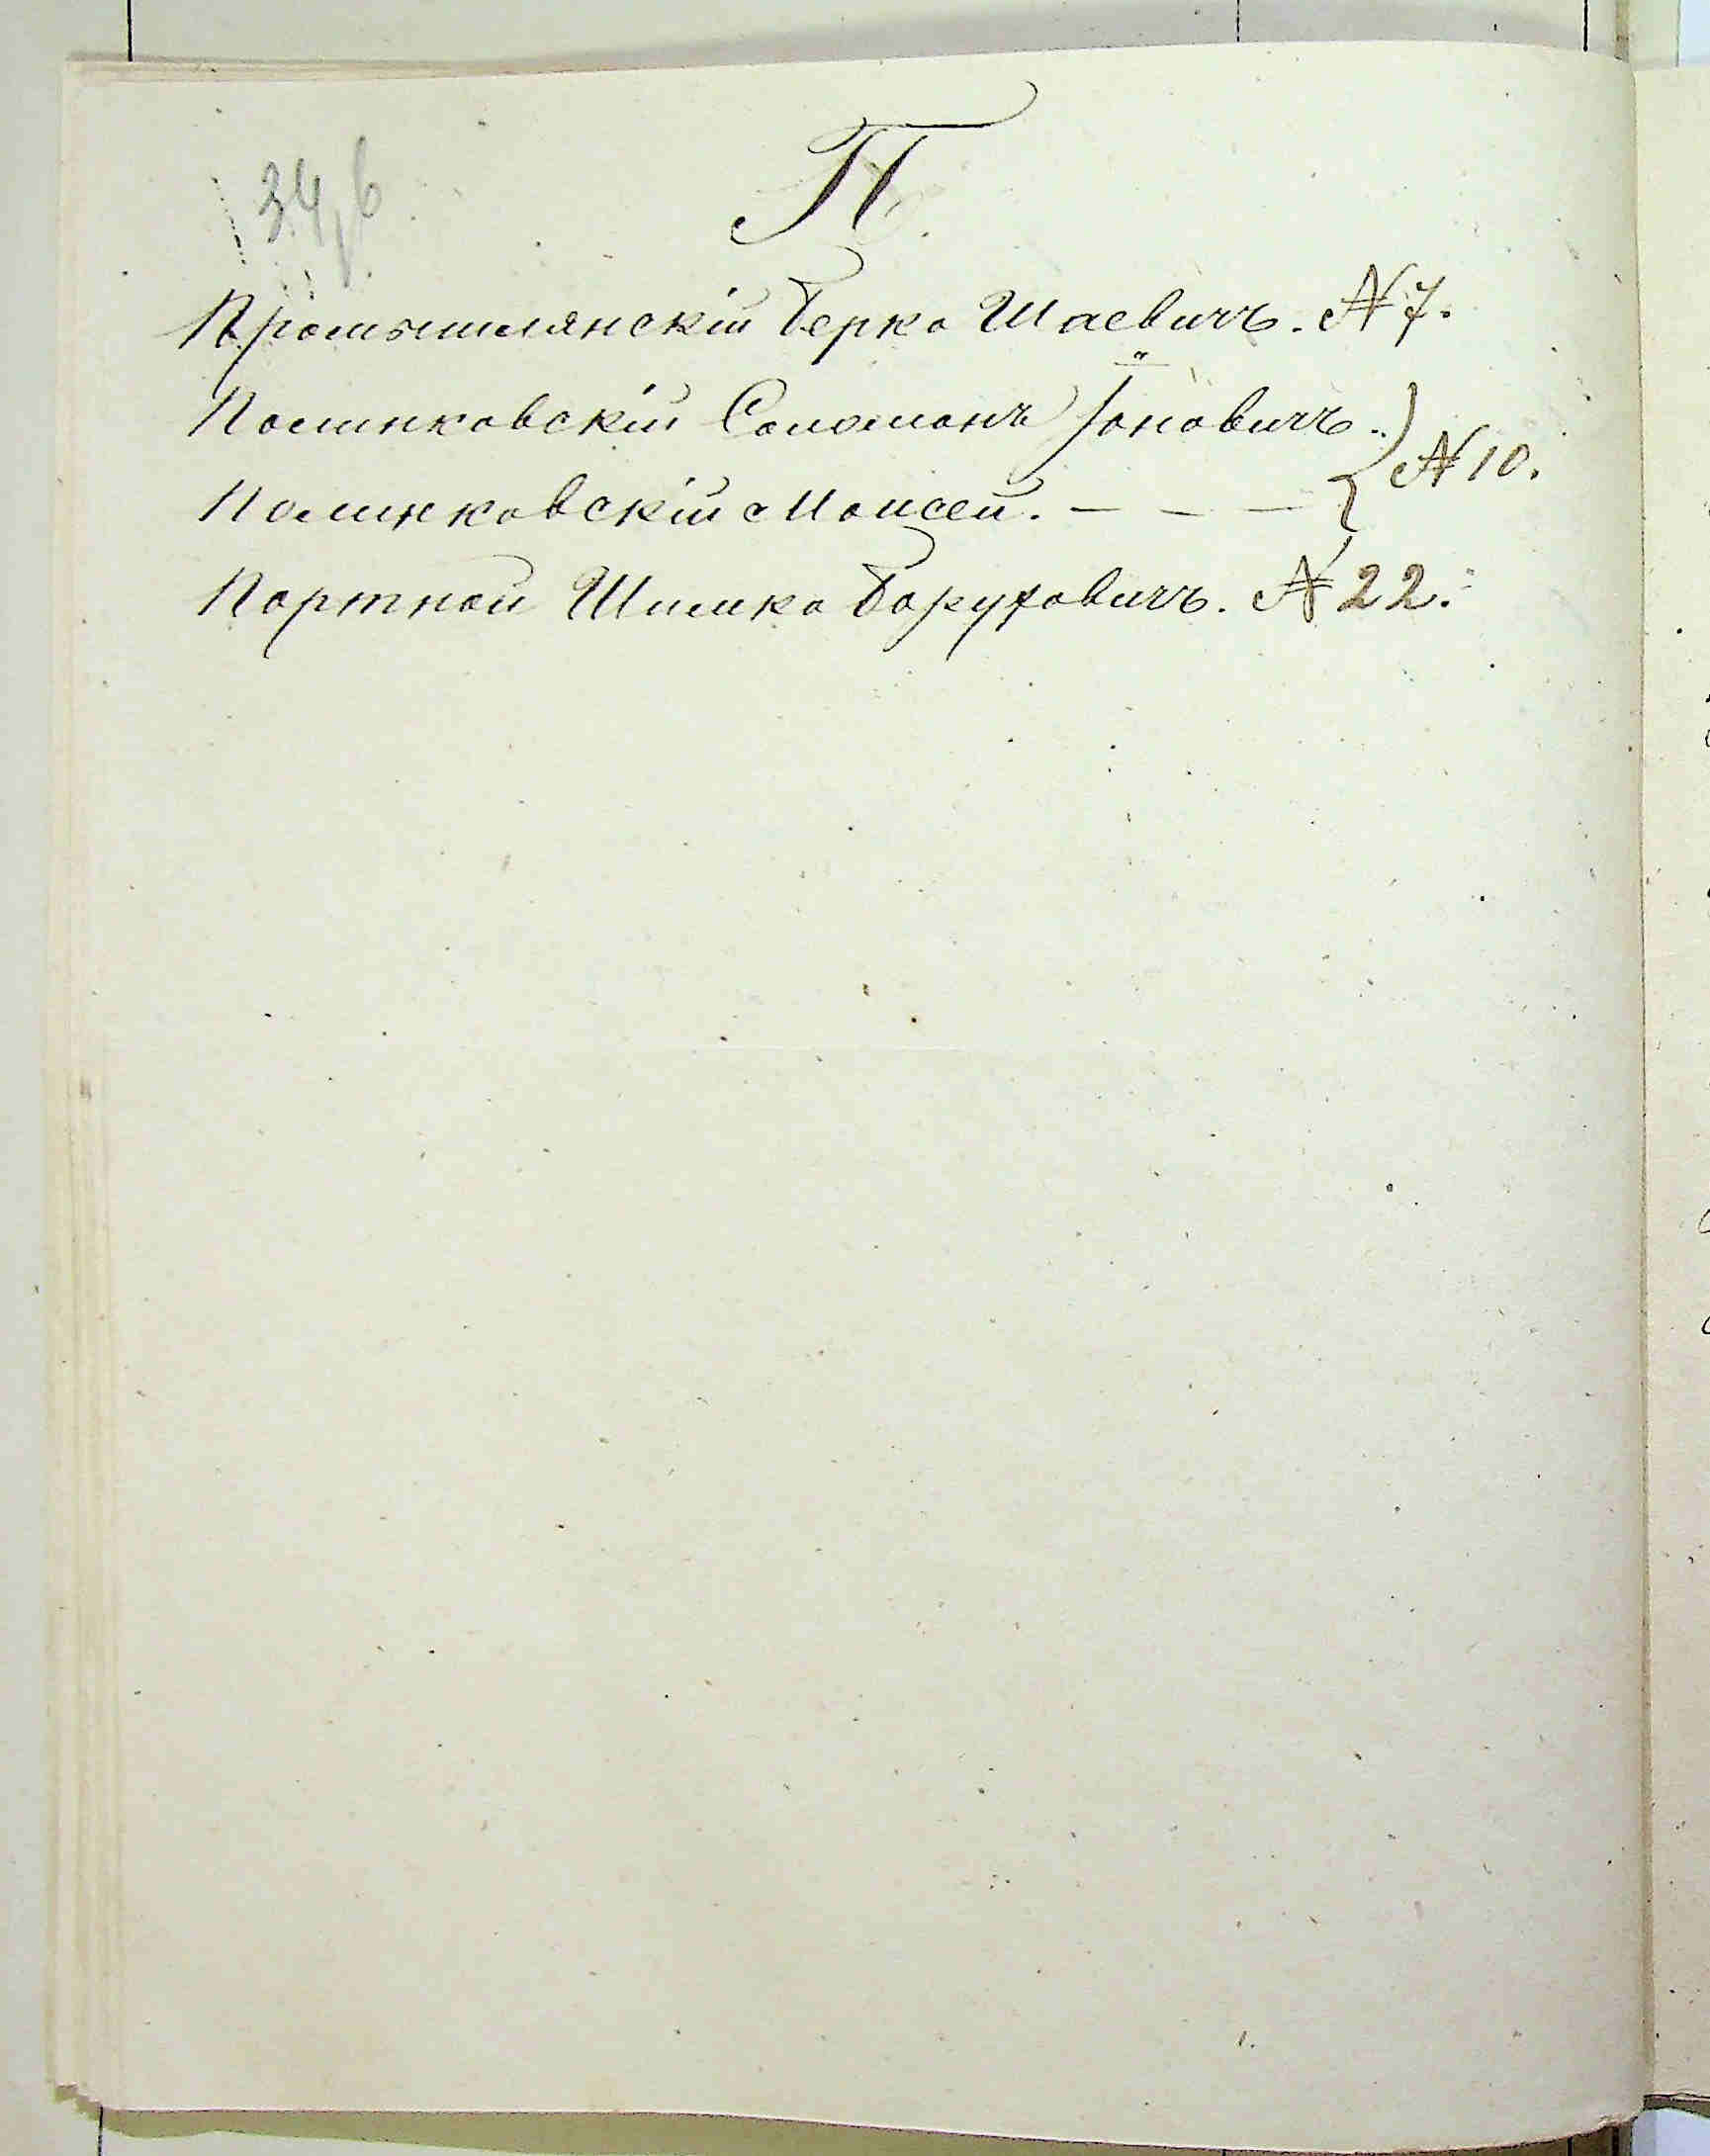 34,б
П.
Промышлянскій Берко Шаевичъ. № 7.
Полинковскій Соломонъ Іоновичъ. } № 10.
Полинковскій Моисей. — — —
Портной Шимко Боруховичъ. № 22.